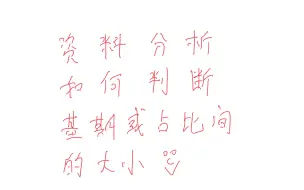 资料分析
如何判断
基期或占比间
的大小